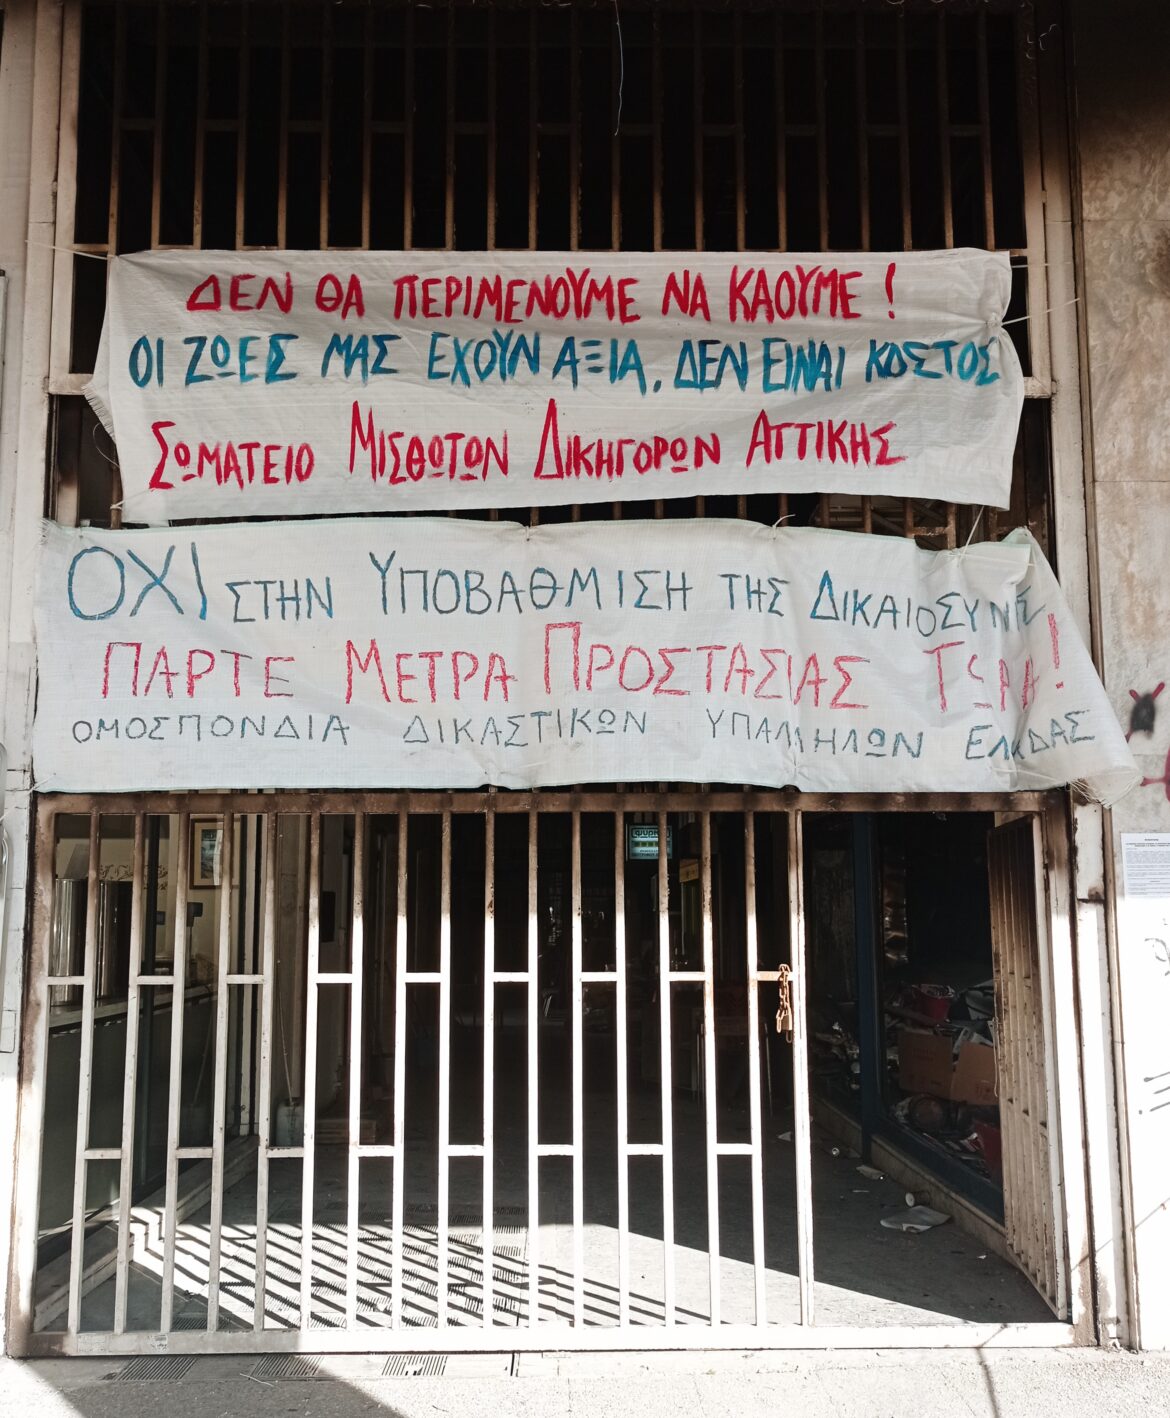 ΔΕΝ ΘΑ ΠΕΡΙΜΕΝΟΥΜΕ ΝΑ ΚΑΟΥΜΕ!
ΟΙ ΖΩΕΣ ΜΑΣ ΕΧΟΥΝ ΑΞΙΑ, ΔΕΝ ΕΙΝΑΙ ΚΟΣΤΟΣ
ΣΩΜΑΤΕΙΟ ΜΙΣΘΩΤΩΝ ΔΙΚΗΓΟΡΩΝ ΑΤΤΙΚΗΣ
ΟΧΙ ΣΤΗΝ ΥΠΟΒΑΘΜΙΣΗ ΤΗΣ ΔΙΚΑΙΟΣΥΝΗΣ
ΠΑΡΤΕ ΜΕΤΡΑ ΠΡΟΣΤΑΣΙΑΣ ΤΩΡΑ!
ΟΜΟΣΠΟΝΔΙΑ ΔΙΚΑΣΤΙΚΩΝ ΥΠΑΛΛΗΛΩΝ ΕΛΛΑΔΑΣ